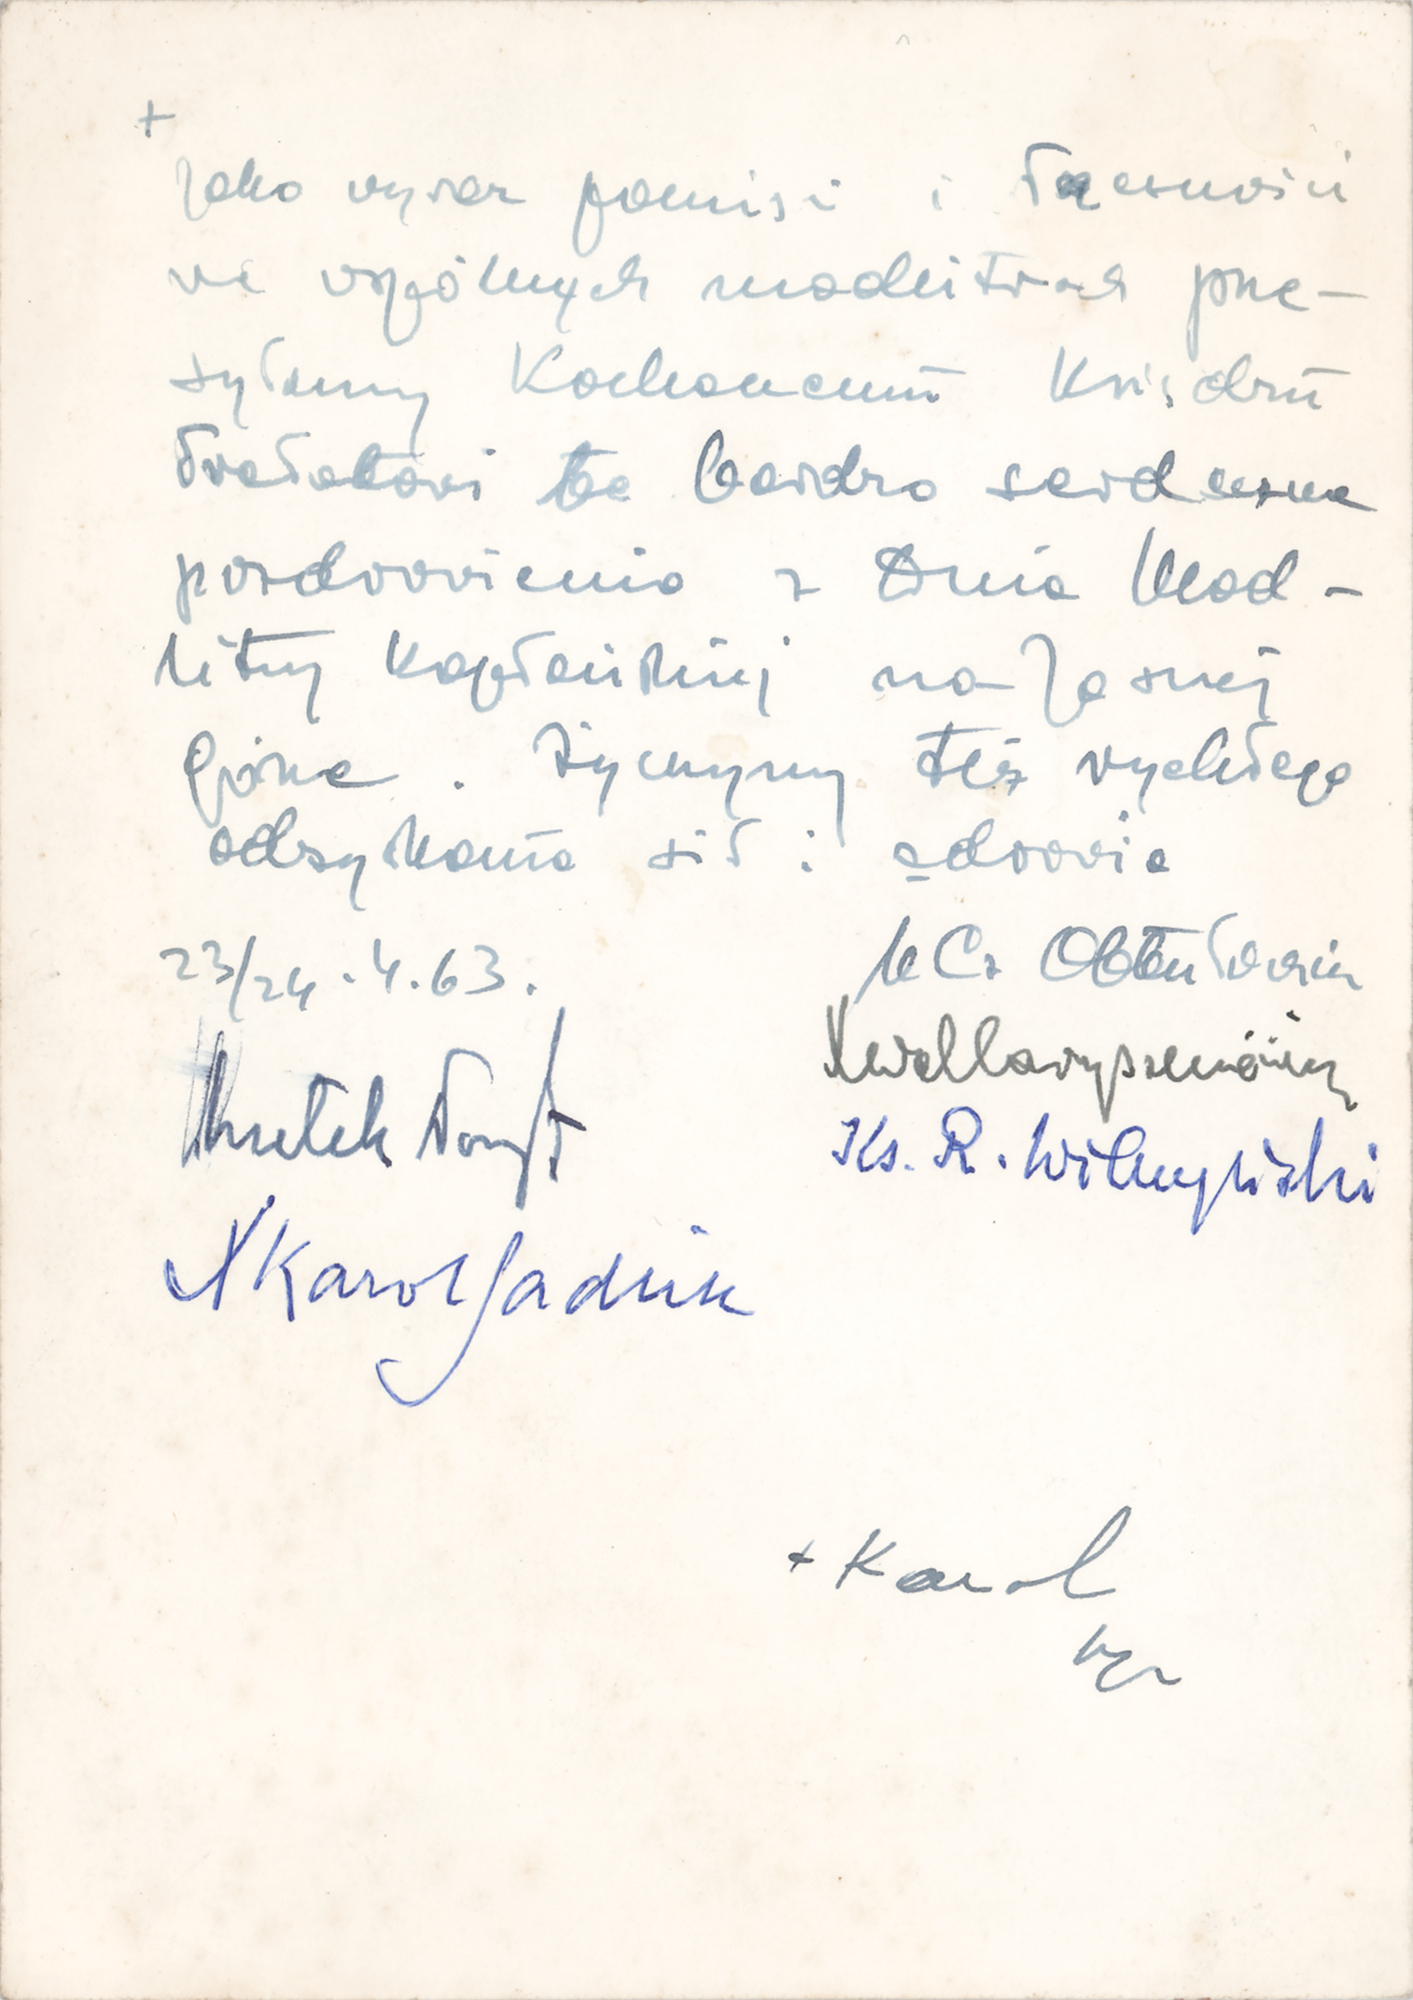 +
Jako wyraz pamięci i łączności
we wspólnych modlitwach prze-
syłamy Kochanemu Księdzu
Prałatowi te bardzo serdeczne
pozdrowienia z Dnia Mod-
litwy Kapłańskiej na Jasnej
Górze. Życzymy też rychłego
odzyskania sił i zdrowia
23/24.4.63.
Ks. R. Wilczyński
X Karol
+ Karol
bp